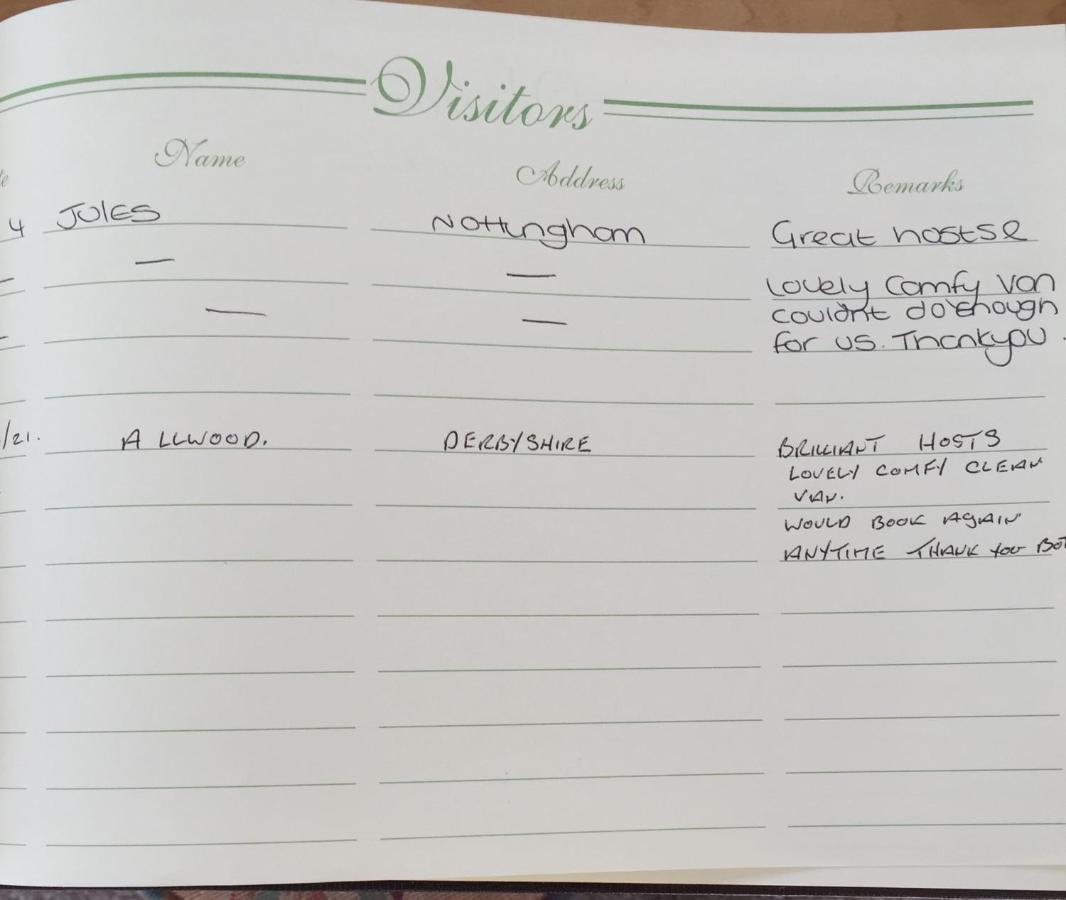 Visitors
Name Address Remarks
4 JULES Nottingham Great hosts &
— — Lovely Comfy Van
— — couldnt do enough
for us. Thankyou.
/21. A LLWOOD. DERBYSHIRE BRILLIANT HOSTS
LOVELY COMFY CLEAN
VAN.
WOULD BOOK AGAIN
ANYTIME THANK You